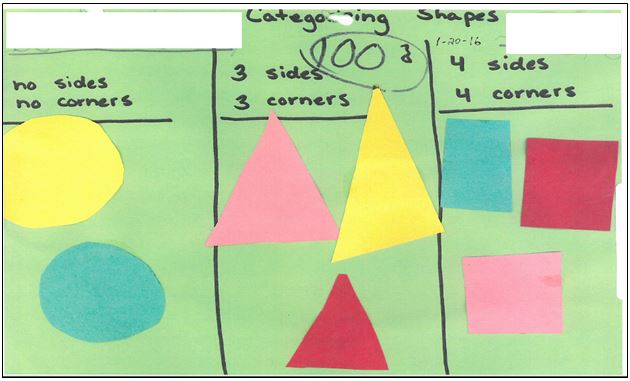 Categorizing Shapes
100
1-20-16
no sides
no corners
3 sides
3 corners
4 sides
4 corners